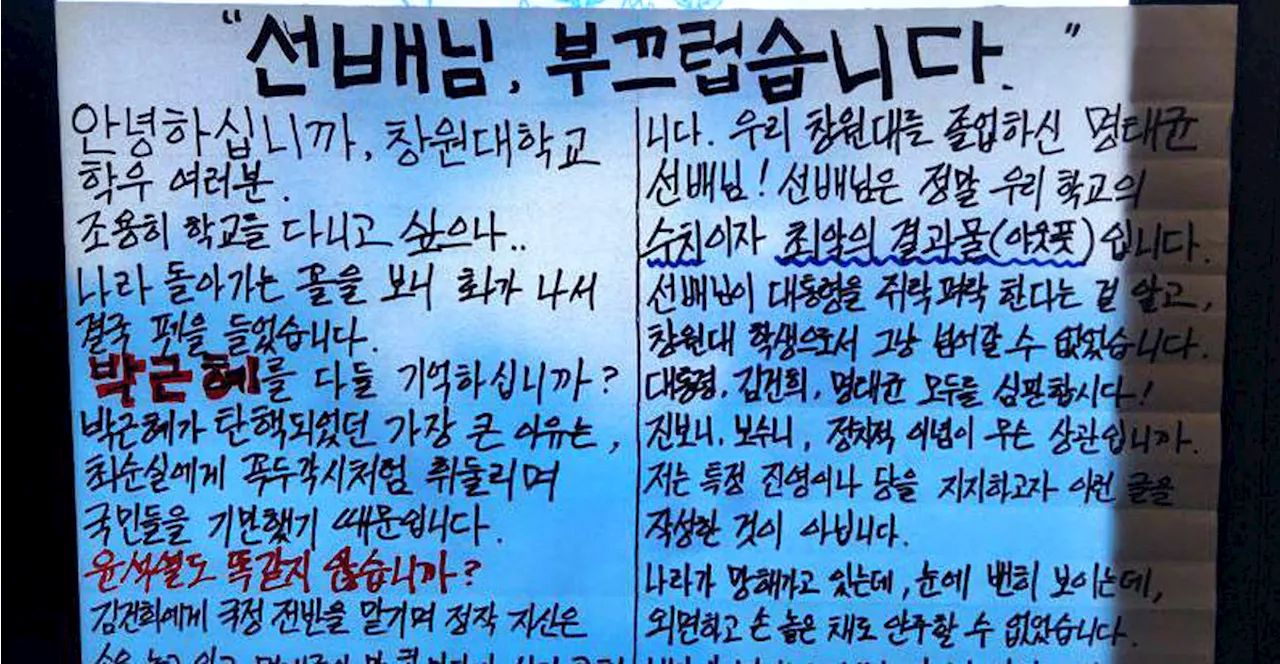 "선배님, 부끄럽습니다."
안녕하십니까, 창원대학교
학우 여러분.
조용히 학교를 다니고 싶으나..
나라 돌아가는 꼴을 보니 화가 나서
결국 펜을 들었습니다.
박근혜를 다들 기억하십니까?
박근혜가 탄핵되었던 가장 큰 이유는,
최순실에게 꼭두각시처럼 휘둘리며
국민들을 기만했기 때문입니다.
윤석열도 똑같지 않습니까?
김건희에게 국정 전반을 맡기며 정작 자신은
니다. 우리 창원대를 졸업하신 명태균
선배님! 선배님은 정말 우리 학교의
수치이자 최악의 결과물(아웃풋)입니다.
선배님이 대통령을 쥐락펴락 한다는 걸 알고,
창원대 학생으로서 그냥 넘어갈 수 없었습니다.
대통령, 김건희, 명태균 모두를 심판합시다!
진보니, 보수니, 정치적 이념이 무슨 상관입니까.
저는 특정 진영이나 당을 지지하고자 이런 글을
작성한 것이 아닙니다.
나라가 망해가고 있는데, 눈에 뻔히 보이는데,
외면하고 손 놓은 채로 안주할 수 없었습니다.